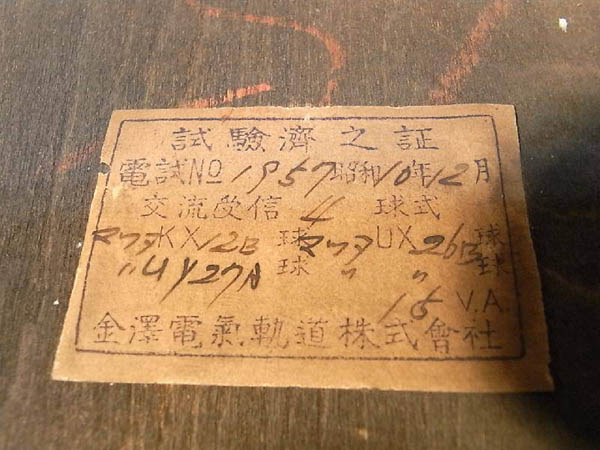 試驗濟之証
電試NO 1957 昭和10年12月
交流受信 4 球式
マツダKX12B球 マツダUX26B球
〃UY27A球 〃 〃 球
15 V.A.
金澤電氣軌道株式會社